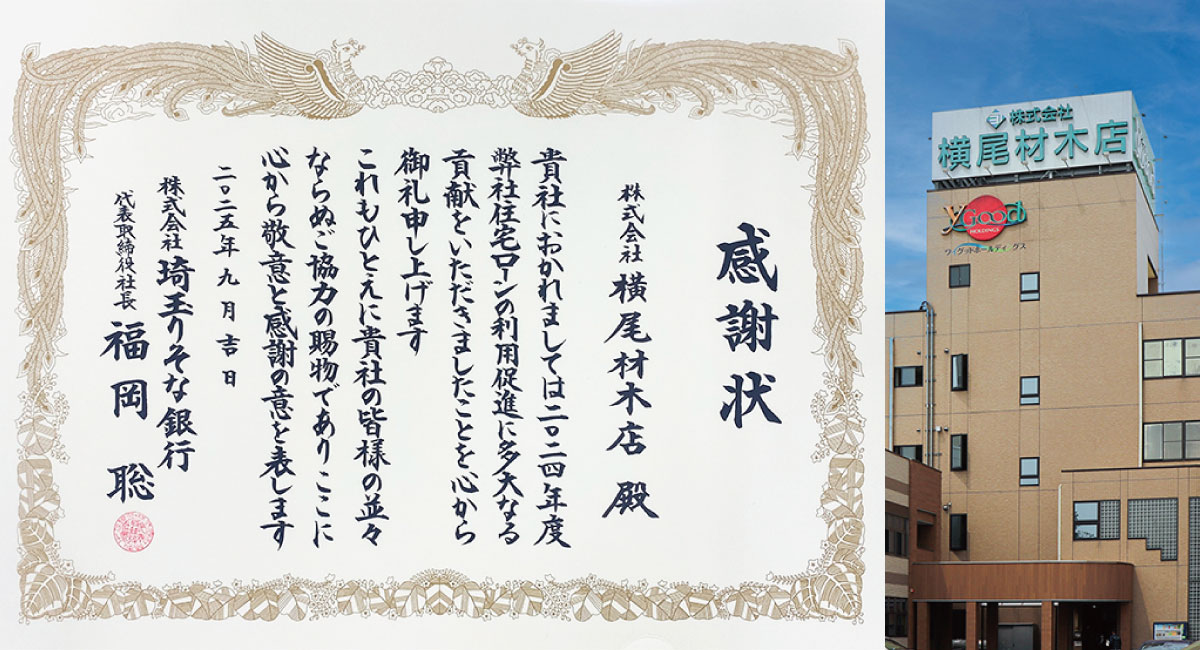 感謝状
株式会社 横尾材木店 殿
貴社におかれましては二〇二四年度
弊社住宅ローンの利用促進に多大なる
貢献をいただきましたことを心から
御礼申し上げます
これもひとえに貴社の皆様の並々
ならぬご協力の賜物でありここに
心から敬意と感謝の意を表します
二〇二五年九月吉日
株式会社 埼玉りそな銀行
代表取締役社長 福岡 聡
株式会社
横尾材木店
yGood
HOLDINGS
ワイグッドホールディングス